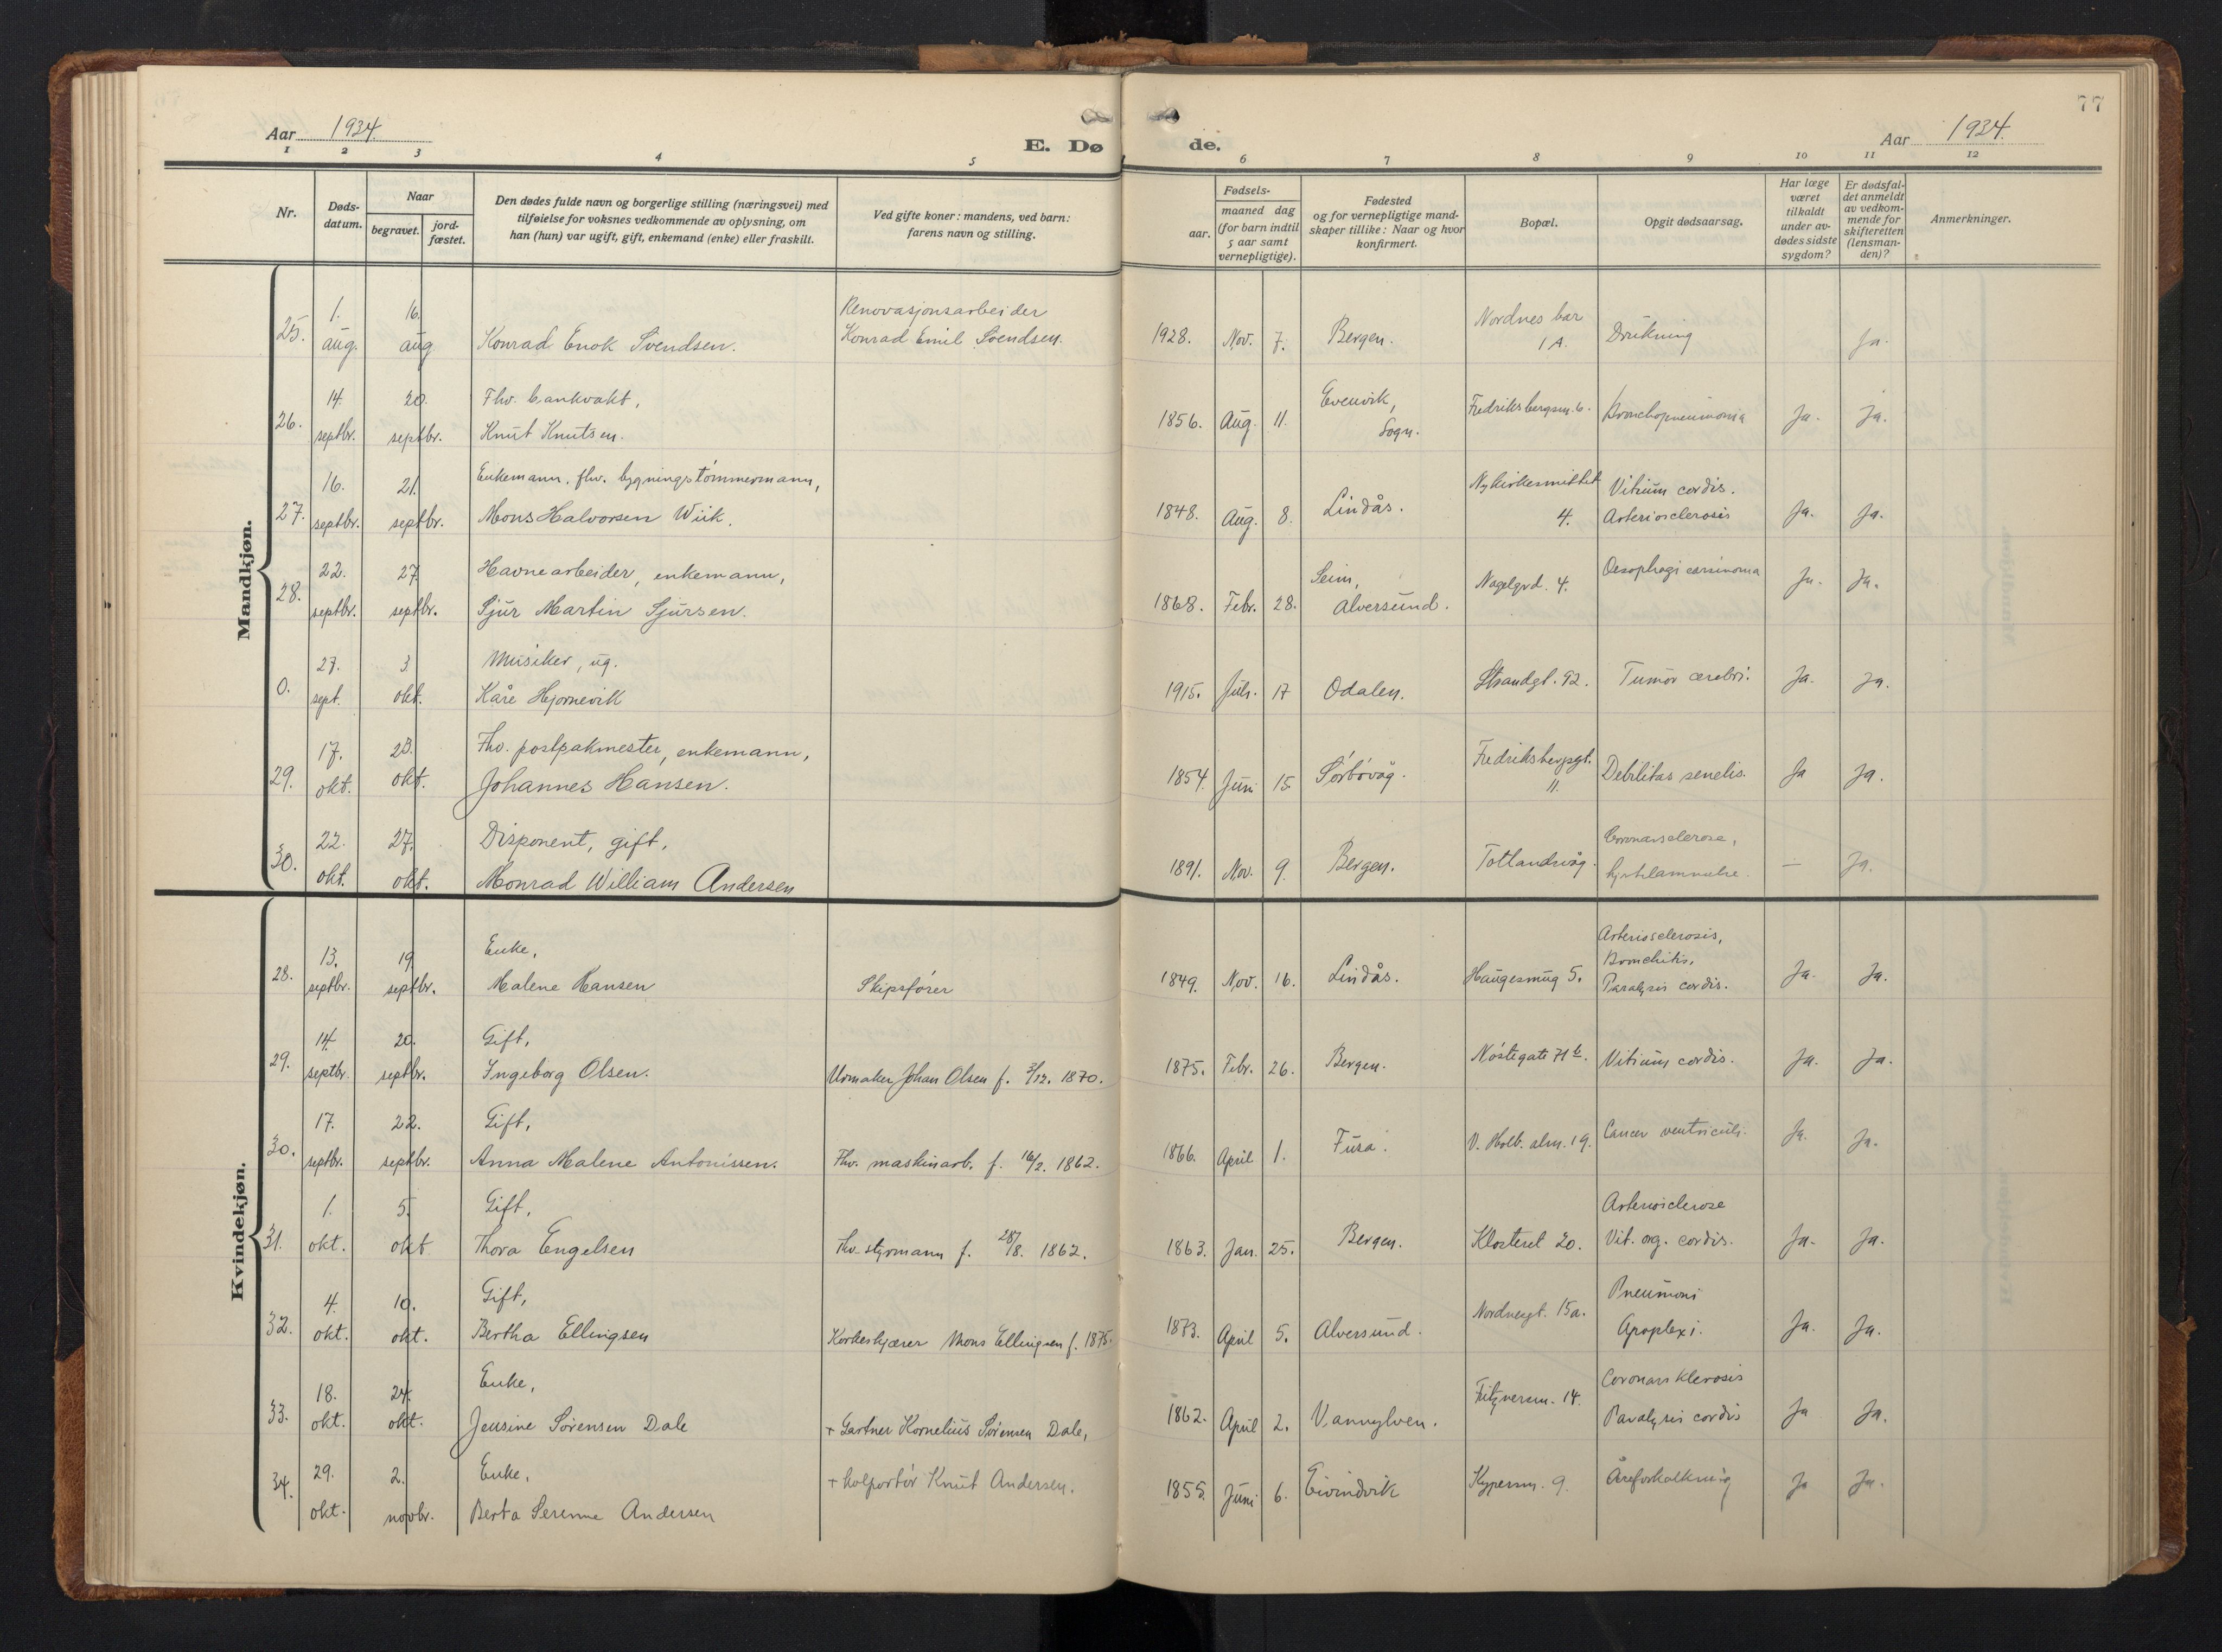 77
Aar 1934.
E. Døde.
Aar 1934.
1 2 3 4 5 6 7 8 9 10 11 12
Nr.
Døds-datum.
Naar
begravet.
jord-fæstet.
Den dødes fulde navn og borgerlige stilling (næringsvei) med
tilføielse for voksnes vedkommende av oplysning, om
han (hun) var ugift, gift, enkemand (enke) eller fraskilt.
Ved gifte koner: mandens, ved barn:
farens navn og stilling.
Fødsels-
aar.
maaned dag
(for barn indtil
5 aar samt
vernepligtige).
Fødested
og for vernepligtige mand-
skaper tillike: Naar og hvor
konfirmert.
Bopæl.
Opgit dødsaarsag.
Har læge
været
tilkaldt
under av-
dødes sidste
sygdom?
Er dødsfal-
det anmeldt
av vedkom-
mende for
skifteretten
(lensman-
den)?
Anmerkninger.
Mandkjøn.
25. 1. aug. 16. aug Konrad Enok Svendsen. Renovasjonsarbeider
Konrad Emil Svendsen. 1928. Nov. 7. Bergen. Nordnes bar
1A. Drukning Ja.
26. 14. septbr. 20. septbr. Fhv. bankvakt,
Knut Knutsen. 1856. Aug. 11. Evenvik,
Sogn. Fredriksbergsm. 6. Bronchopneumonia Ja. Ja.
27. 16. septbr. 21. septbr. Enkemann, fhv. bygningstømmermann,
Mons Halvorsen Wiik. 1848. Aug. 8. Lindås. Nykirkesmittet
4. Vitium cordis.
Arteriosclerosis Ja. Ja.
28. 22. septbr. 27. septbr. Havnearbeider, enkemann,
Sjur Martin Sjursen. 1868. Febr. 28. Seim,
Alversund. Nagelgrd. 4. Oesophagi carsinoma Ja. Ja.
0. 27. sept. 3. okt. Musiker, ug.
Kåre Hjornevik 1915. Juli. 17 Odalen. Strandgt. 92. Tumor cerebri. Ja. Ja.
29. 17. okt. 23. okt. Fhv. postpakmester, enkemann,
Johannes Hansen. 1854. Juni 15. Sørbøvåg. Fredriksbergsgt.
11. Debilitas senelis. Ja Ja.
30. 22. okt. 27. okt. Disponent, gift,
Monrad William Andersen 1891. Nov. 9. Bergen. Totlandsvåg. Coronarsclerose,
hjertelammelse. — Ja.
Kvindekjøn.
28. 13. septbr. 19 septbr. Enke,
Malene Hansen Skipsfører 1849. Nov. 16. Lindås. Haugesmug 5. Arteriosclerosis,
Bronchitis,
Paralysis cordis. Ja. Ja.
29. 14. septbr. 20. septbr. Gift,
Ingeborg Olsen. Urmaker Johan Olsen f. 3/12. 1870. 1875. Febr. 26. Bergen. Nøstegate 71 b. Vitium cordis. Ja. Ja.
30. 17. septbr. 22. septbr. Gift,
Anna Malene Antonissen. Fhv. maskinarb. f. 16/2. 1862. 1866. April 1. Fusa. V. Holb. alm. 19. Cancer ventriculi. Ja. Ja.
31. 1. okt. 5. okt Gift,
Thora Engelsen Fhv. styrmann f. 28/8. 1862. 1863. Jan. 25. Bergen. Klosteret 20. Arteriosclerose
Vit. org. cordis. Ja. Ja.
32. 4. okt. 10. okt. Gift,
Bertha Ellingsen Korkeskjærer Mons Ellingsen f. 1875. 1873. April 5. Alversund. Nordnesgt. 15a. Pneumoni
Apoplexi. Ja. Ja.
33. 18. okt. 24. okt. Enke,
Jensine Sørensen Dale + Gartner Kornelius Sørensen Dale, 1862. April 2. Vannylven. Fitzversm. 14. Coronarsklerosis
Paralysis cordis Ja Ja.
34. 29. okt. 2. novbr. Enke,
Berta Serenne Andersen + kolportør Knut Andersen. 1855. Juni 6. Eivindvik Kypersm. 9. Åreforkalkning Ja Ja.